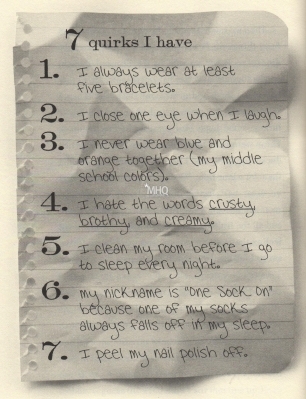 7 quirks I have
1. I always wear at least
five bracelets.
2. I close one eye when I laugh.
3. I never wear blue and
orange together (my middle
school colors).
MHQ
4. I hate the words crusty,
brothy, and creamy.
5. I clean my room before I go
to sleep every night.
6. my nickname is "One Sock On"
because one of my socks
always falls off in my sleep.
7. I peel my nail polish off.